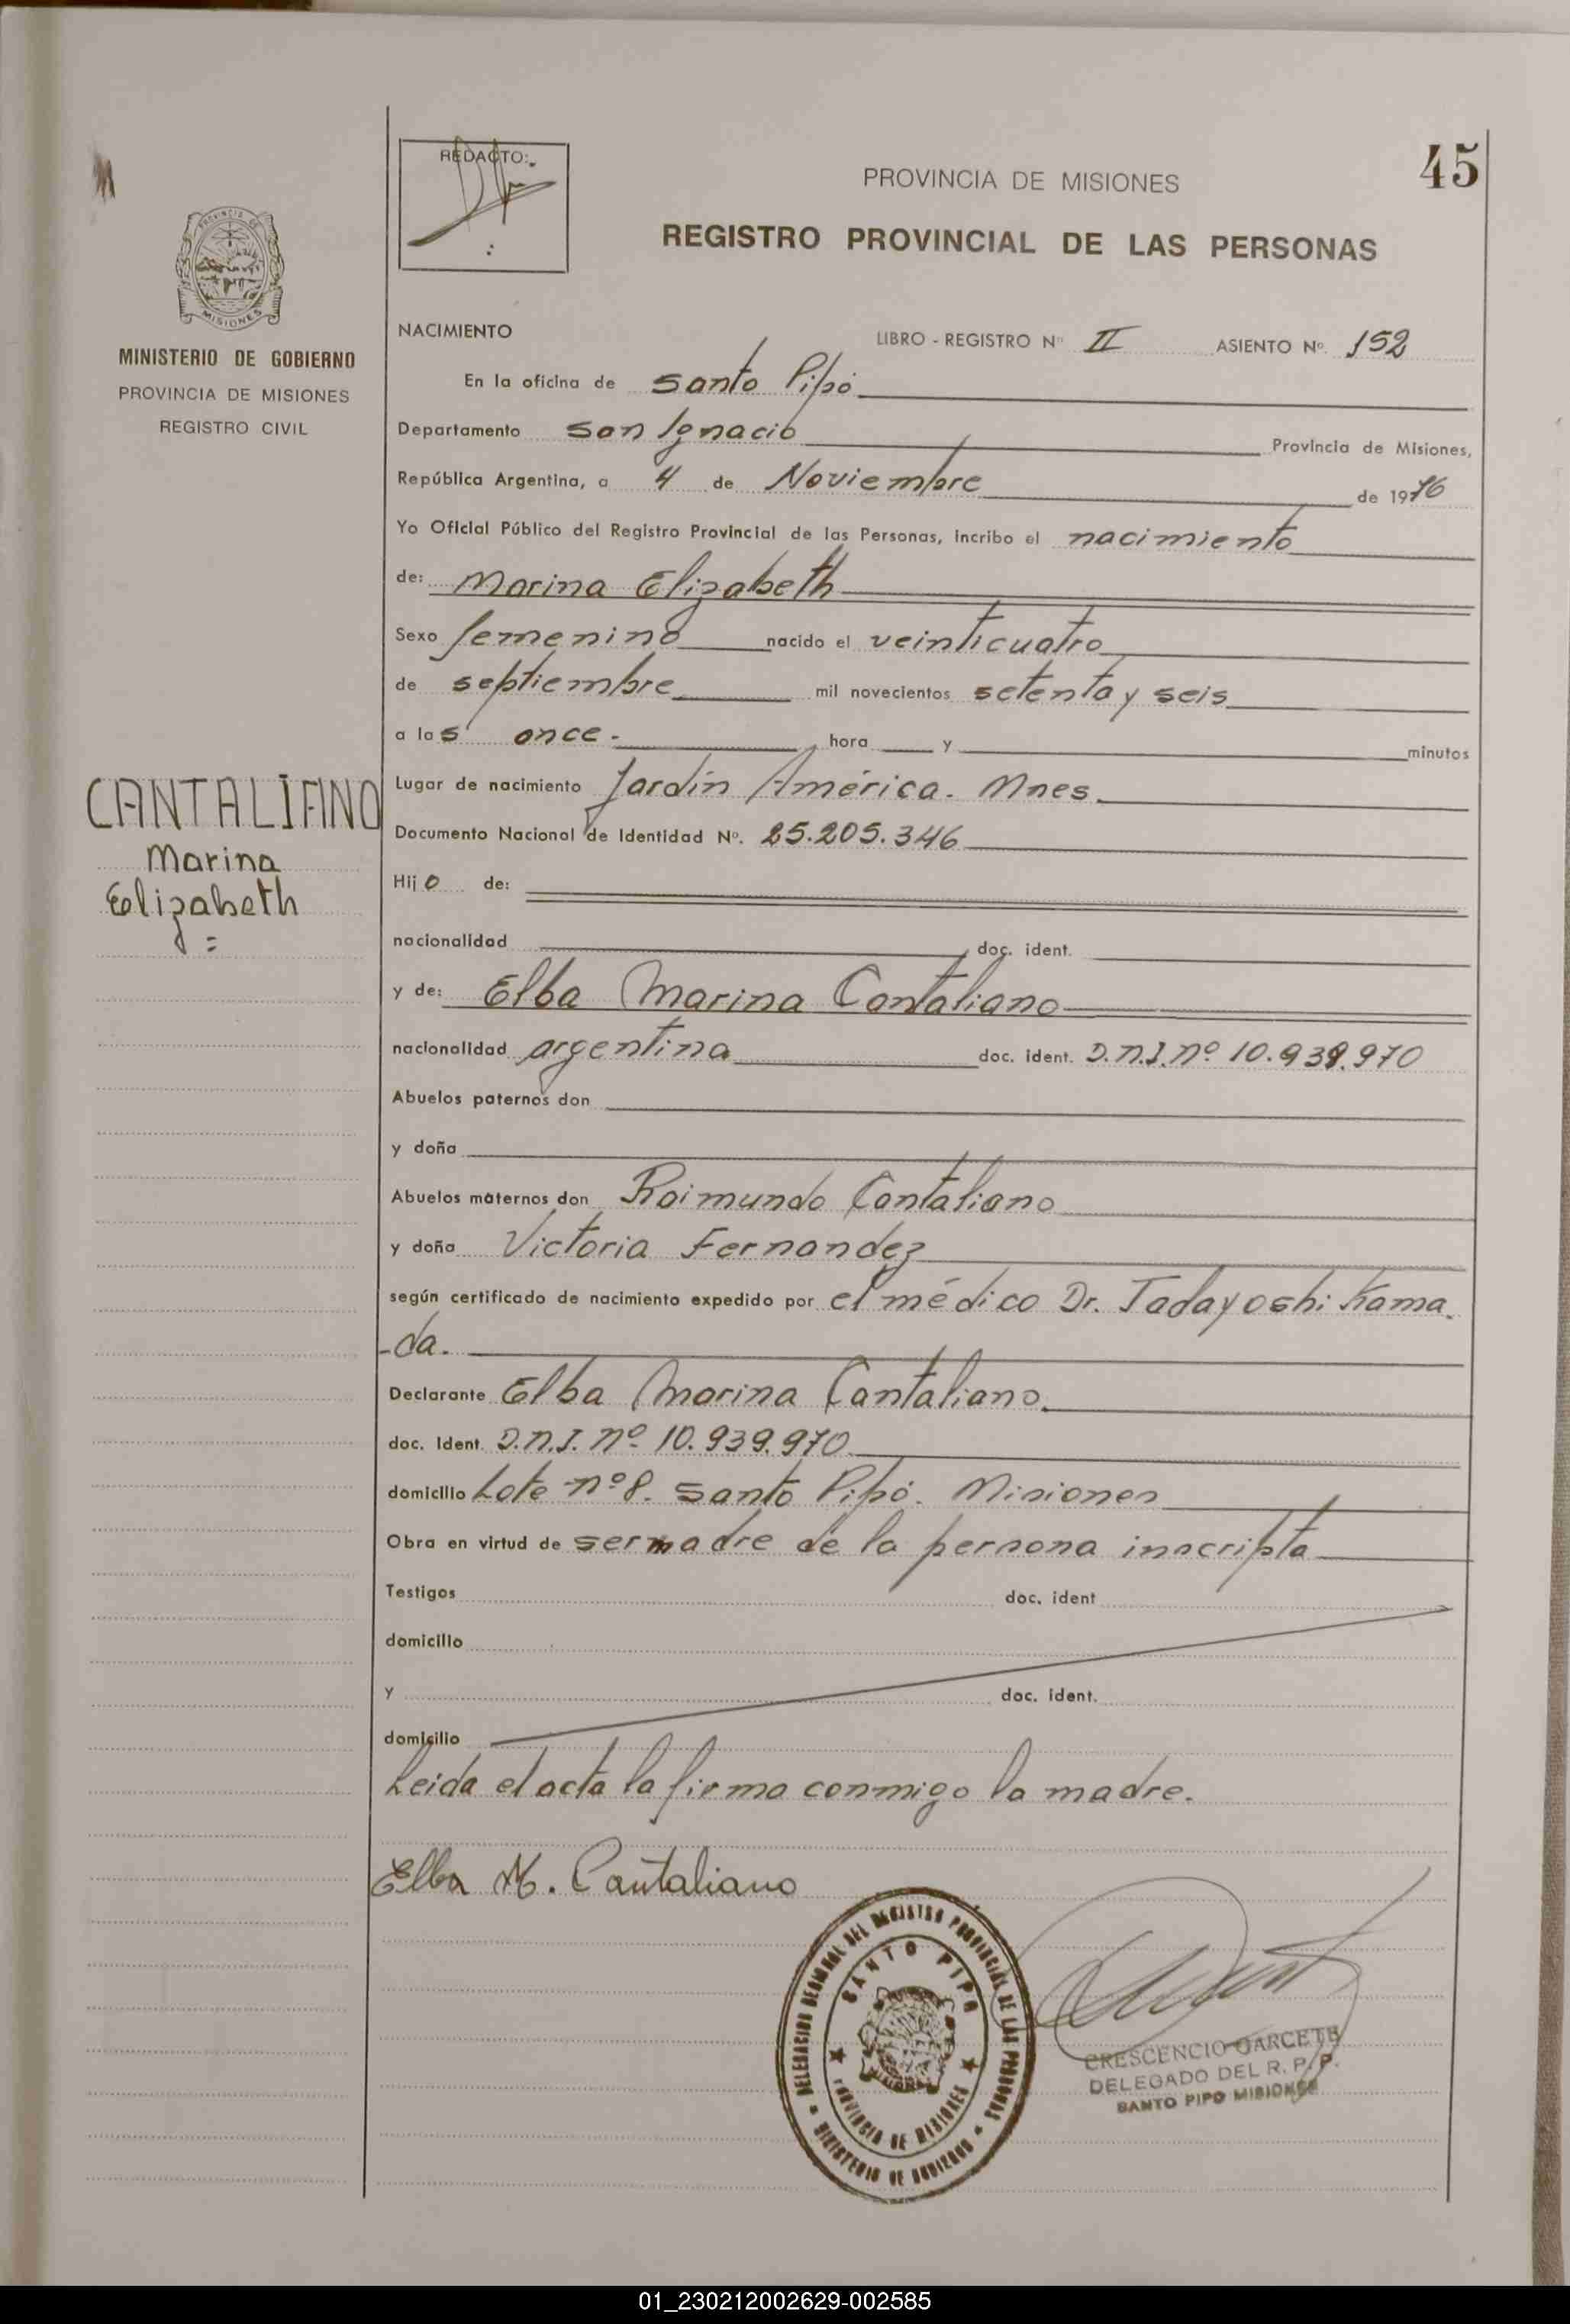 45
REDACTO:
PROVINCIA DE MISIONES
REGISTRO PROVINCIAL DE LAS PERSONAS
PROVINCIA DE
MISIONES
MINISTERIO DE GOBIERNO
PROVINCIA DE MISIONES
REGISTRO CIVIL
CANTALIANO
Marina
Elizabeth
NACIMIENTO LIBRO - REGISTRO Nº II ASIENTO Nº 152
En la oficina de Santo Pipó
Departamento San Ignacio Provincia de Misiones,
República Argentina, a 4 de Noviembre de 1976
Yo Oficial Público del Registro Provincial de las Personas, incribo el nacimiento
de: Marina Elizabeth
Sexo femenino nacido el veinticuatro
de septiembre mil novecientos setenta y seis
a las once. hora y minutos
Lugar de nacimiento Jardín América. Mnes.
Documento Nacional de Identidad Nº. 25.205.346
Hijo de:
nacionalidad doc. ident.
y de: Elba Marina Cantaliano
nacionalidad argentina doc. ident. D.N.I. nº 10.939.970
Abuelos paternos don
y doña
Abuelos maternos don Raimundo Cantaliano
y doña Victoria Fernandez
según certificado de nacimiento expedido por el médico Dr. Tadayoshi Kama-
-da.
Declarante Elba Marina Cantaliano.
doc. Ident. D.N.I. Nº 10.939.970
domicilio Lote nº 8. Santo Pipó. Misiones
Obra en virtud de ser madre de la persona inscripta
Testigos doc. ident
domicilio
y doc. ident.
domicilio
Leida el acta la firma conmigo la madre.
Elba M. Cantaliano
DELEGACION REGIONAL DEL REGISTRO PROVINCIAL DE LAS PERSONAS
SANTO PIPO
PROVINCIA DE MISIONES
MINISTERIO DE GOBIERNO
CRESCENCIO GARCETE
DELEGADO DEL R. P. P.
SANTO PIPO MISIONES
01_230212002629-002585